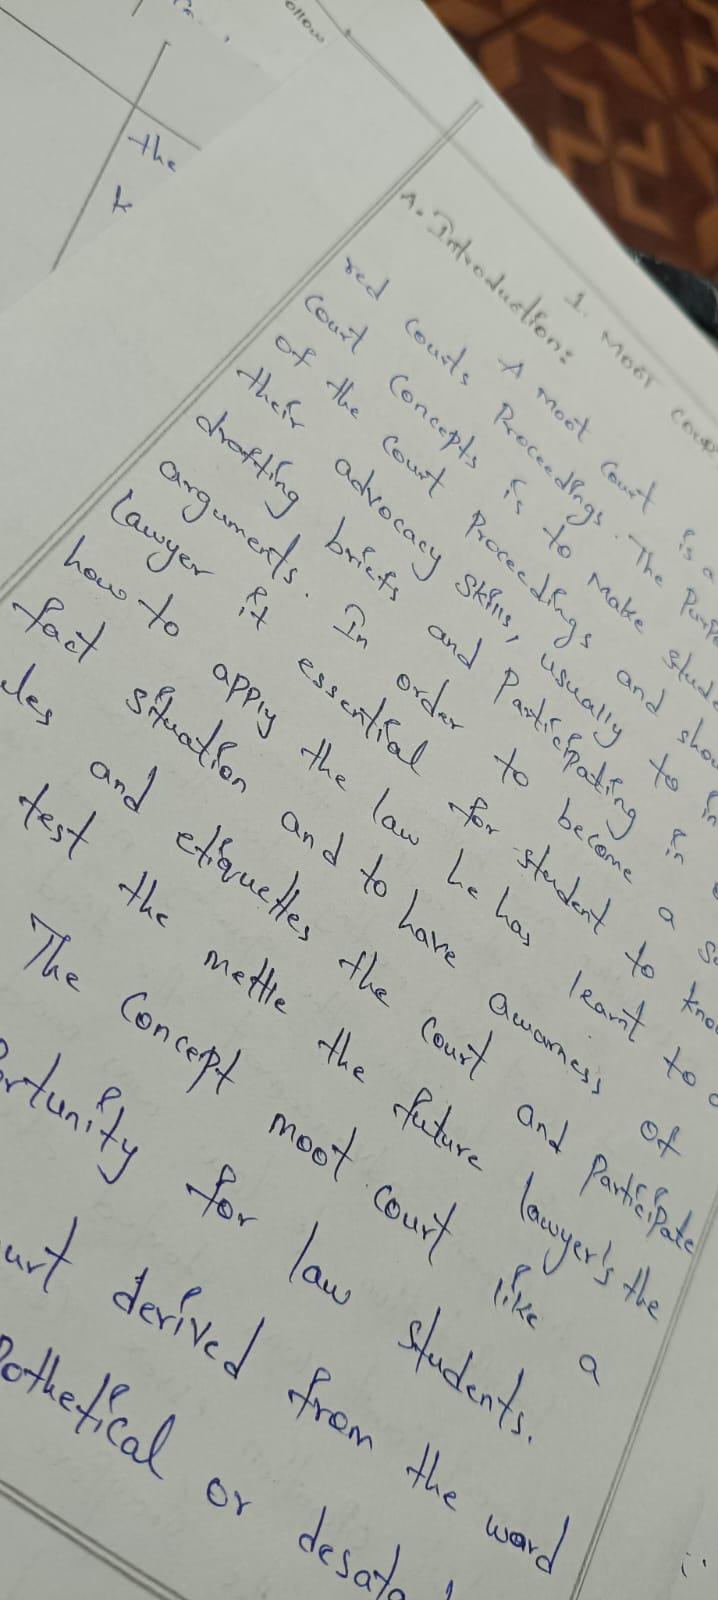 ollow
the
k
1. MOOT COUR
A. Introduction:
A moot Court is a
red courts Proceedings. The Purpo
Court Concepts is to make stude
of the court Proceedings and shou
their advocacy skills, usually to in
drafting briefs and Participating in
arguments. In order to become a
Lawyer it essential for student to kno
how to apply the law he has learnt to
fact situation and to have awarness of
ules and etiquettes the court and Participate
test the mettle the future lawyer's the
The Concept moot court like a
ortunity for law students.
urt derived from the word
Pothetical or desata